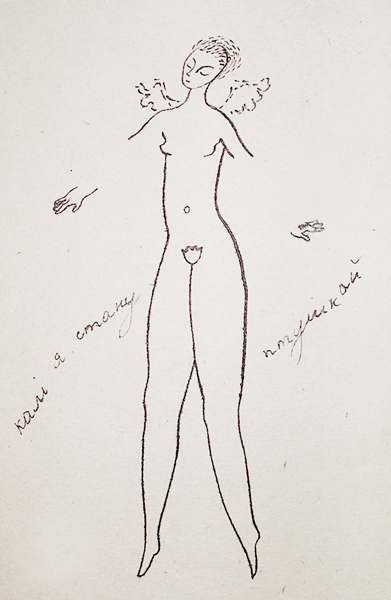 калі я стану
птушкай